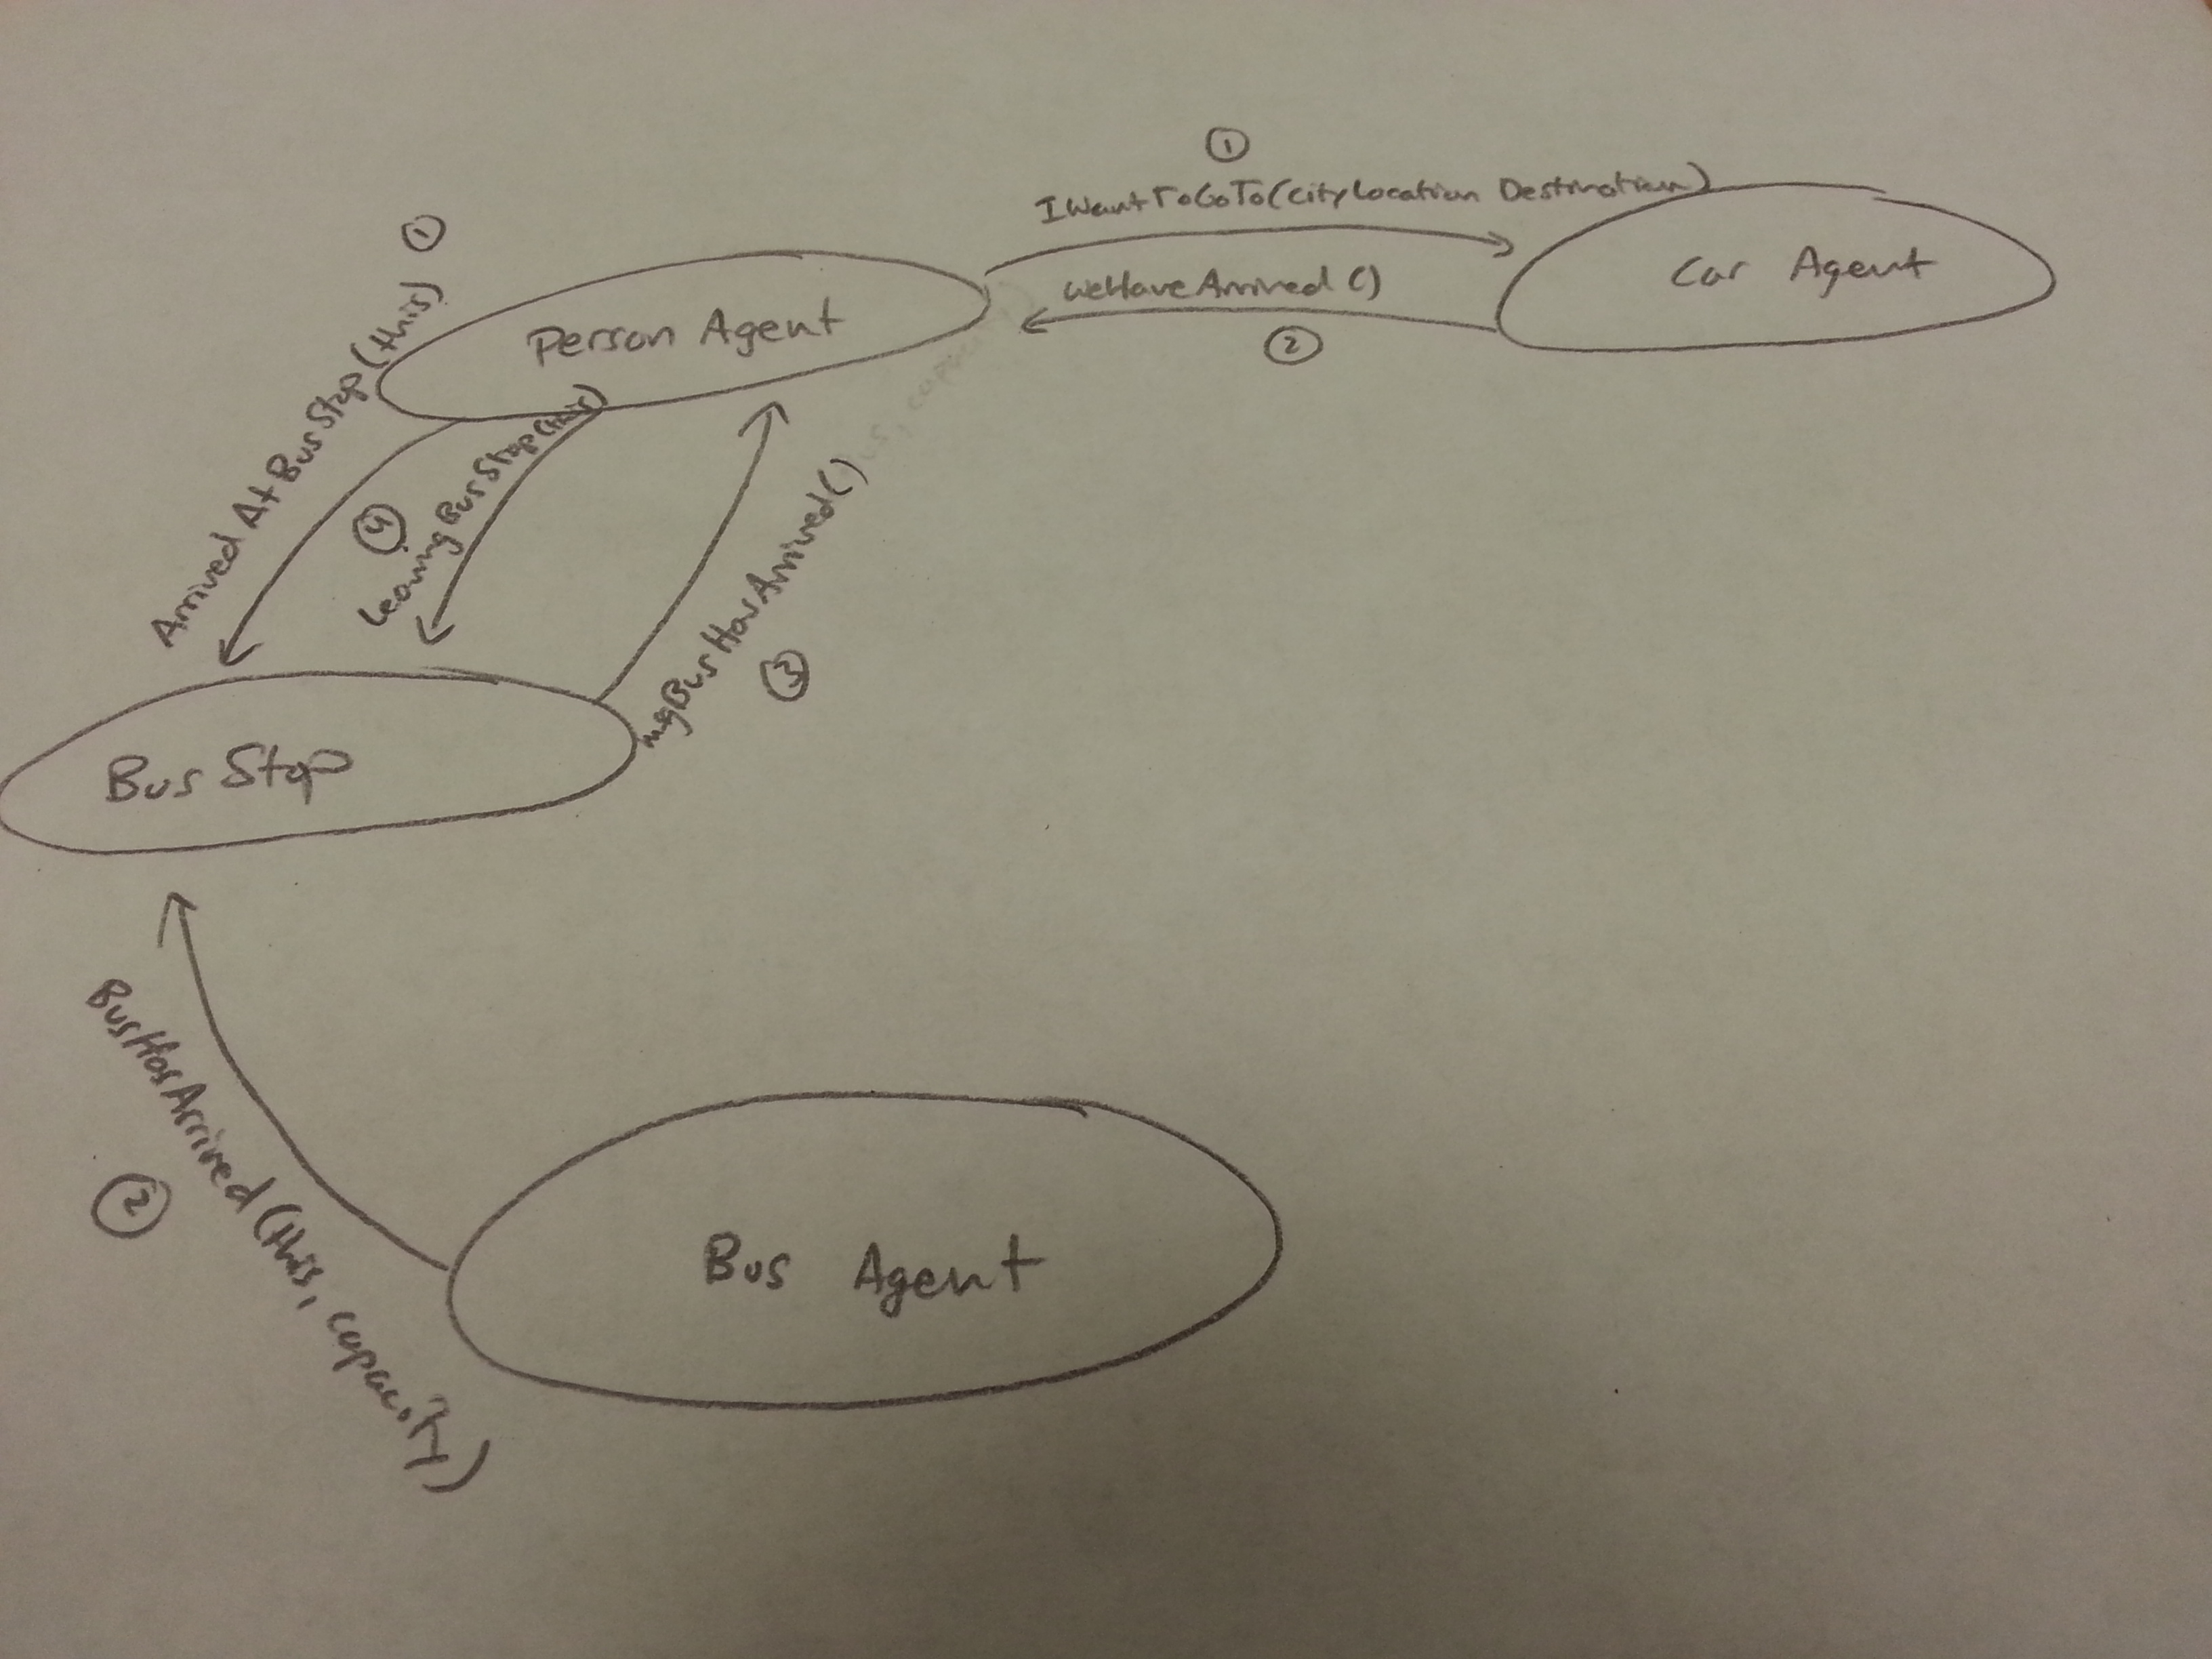 ①
IWantToGoTo(CityLocation Destination)
Car Agent
WeHaveArrived()
②
Person Agent
①
ArrivedAtBusStop(this)
④
LeavingBusStop(this)
msgBusHasArrived()
③
Bus Stop
BusHasArrived(this, capacity)
②
Bus Agent